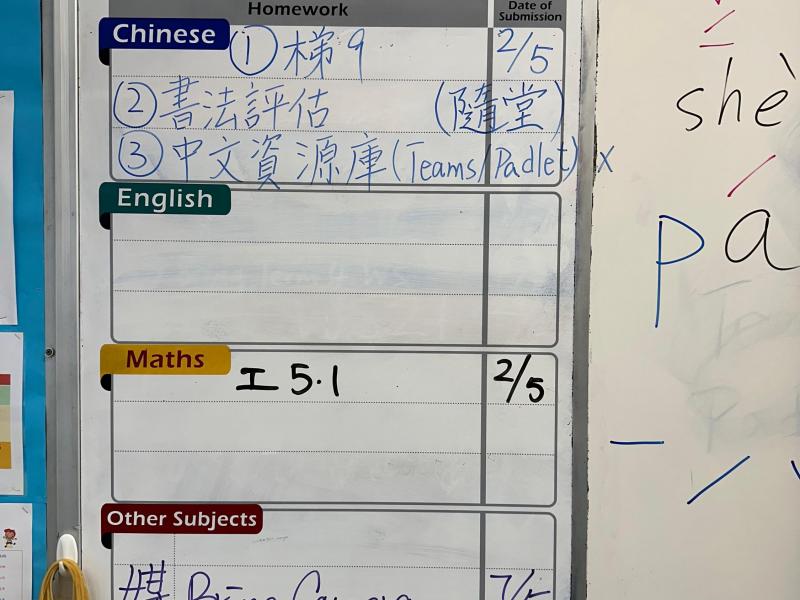 Homework
Date of Submission
Chinese ① 梯9 2/5
② 書法評估 (隨堂)
③ 中文資源庫(Teams/Padlet) x
English
Maths 工 5.1 2/5
Other Subjects
7/5
shè
pá